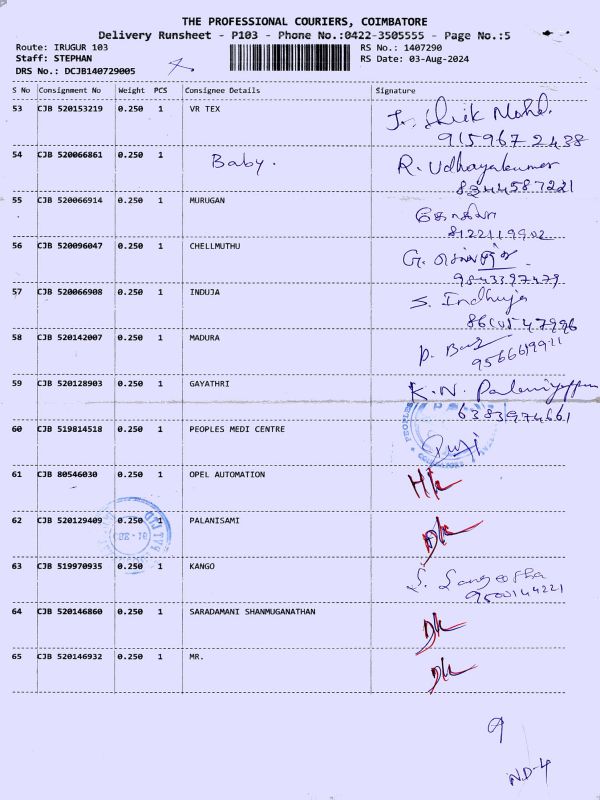 THE PROFESSIONAL COURIERS, COIMBATORE
Delivery Runsheet - P103 - Phone No.:0422-3505555 - Page No.:5
Route: IRUGUR 103 RS No.: 1407290
Staff: STEPHAN RS Date: 03-Aug-2024
DRS No.: DCJB140729005
S No Consignment No Weight PCS Consignee Details Signature
53 CJB 520153219 0.250 1 VR TEX
9159672438
54 CJB 520066861 0.250 1 Baby. R. Udhayakumar
8344587221
55 CJB 520066914 0.250 1 MURUGAN
8122119902
56 CJB 520096047 0.250 1 CHELLMUTHU G.
9843397479
57 CJB 520066908 0.250 1 INDUJA S. Indhuja
58 CJB 520142007 0.250 1 MADURA
59 CJB 520128903 0.250 1 GAYATHRI K.N. Palaniyappan
6383974661
60 CJB 519814518 0.250 1 PEOPLES MEDI CENTRE
61 CJB 80546030 0.250 1 OPEL AUTOMATION
62 CJB 520129409 0.250 1 PALANISAMI
63 CJB 519970935 0.250 1 KANGO S. Sangeetha
9500144221
64 CJB 520146860 0.250 1 SARADAMANI SHANMUGANATHAN
65 CJB 520146932 0.250 1 MR.
9
ND-4